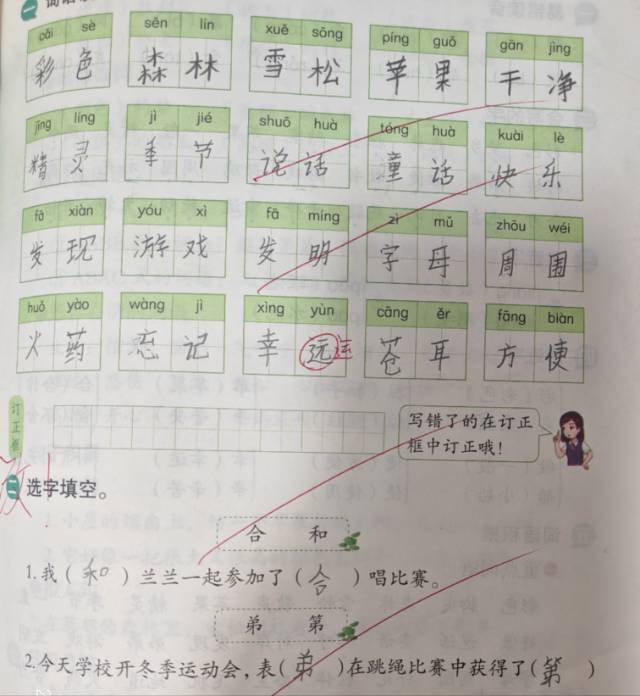 一
cǎi sè sēn lín xuě sōng píng guǒ gān jìng
彩色 森林 雪松 苹果 干净
jīng líng jì jié shuō huà tóng huà kuài lè
精灵 季节 说话 童话 快乐
fā xiàn yóu xì fā míng zì mǔ zhōu wéi
发现 游戏 发明 字母 周围
huǒ yào wàng jì xìng yùn cāng ěr fāng biàn
火药 忘记 幸远 运 苍耳 方便
订正框
写错了的在订正
框中订正哦!
改
二 选字填空。
合 和
1.我( 和 )兰兰一起参加了( 合 )唱比赛。
弟 第
2.今天学校开冬季运动会,表( 弟 )在跳绳比赛中获得了( 第 )